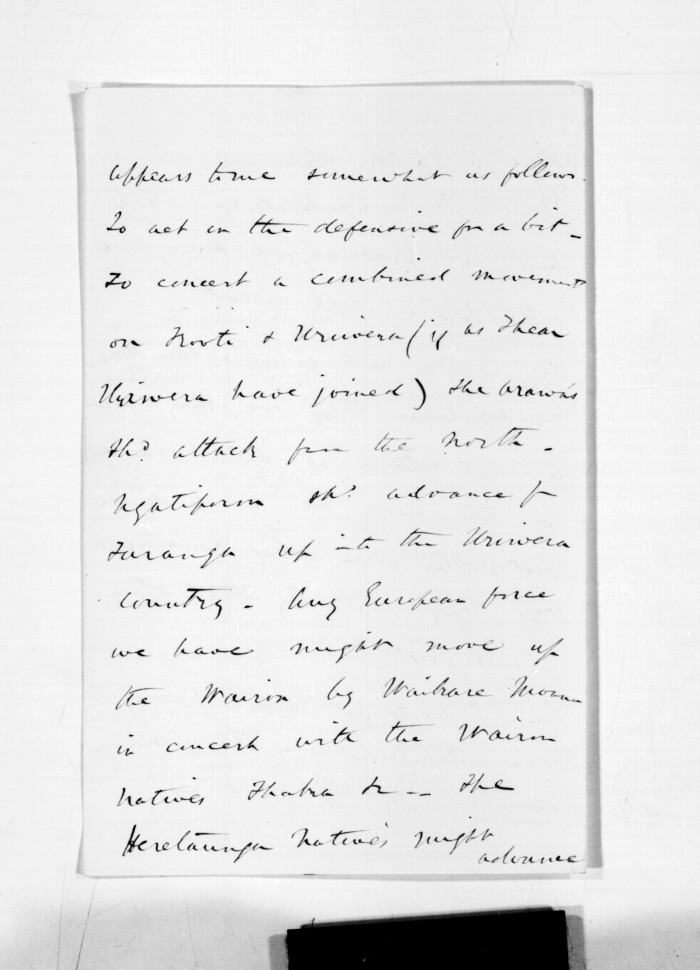 appears to me somewhat as follows.
To act on the defensive for a bit -
To concert a combined movement
on Kooti & Uriwera (if as I hear
Uriwera have joined) The Arawas
shd. attack from the North -
Ngatiporou shd. advance fr
Turanga up into the Uriwera
country - Any European force
we have might move up
the Wairoa by Waikare Moana
in concert with the Wairoa
Natives Ihaka &c - The
Heretaunga Natives might
advance